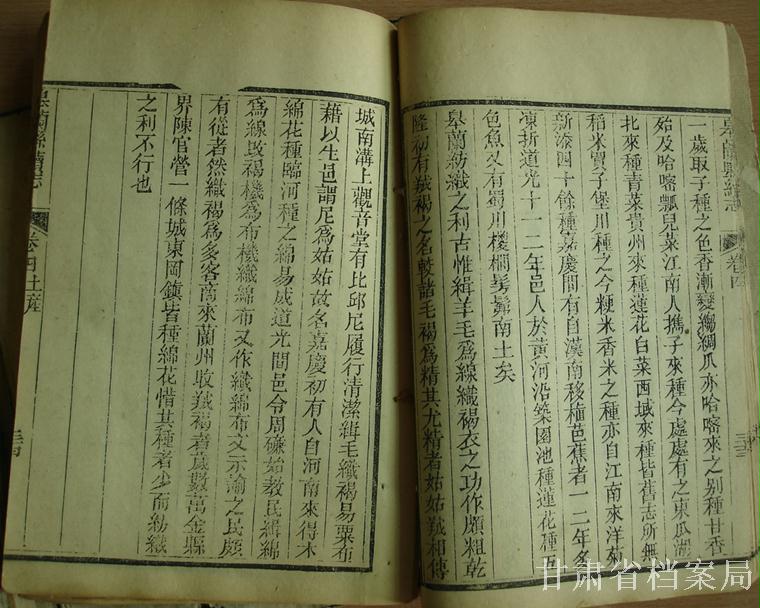 皋蘭縣續志
卷四
一歲取子種之色香漸變縐綢爪亦哈嘧來之別種甘香
始及哈嘧瓢兒菜江南人携子來種今處處有之東瓜湖
北來種青菜貴州來種蓮花白菜西域來種皆舊志所無
稻米買子堡川種之今粳米香米之種亦自江南來洋菊
新添四十餘種嘉慶間有自漢南移種芭蕉者一二年多
凍折道光十一二年邑人於黃河沿築園池種蓮花種五
色魚又有蜀川椶櫚髣髴南土矣
皋蘭紡織之利古惟緝羊毛爲線織褐衣之功作頗粗乾
隆初有羢褐之名較諸毛褐爲精其尤精者姑姑羢相傳
城南溝上觀音堂有比邱尼履行清潔緝毛織褐易粟布
藉以生邑謂尼爲姑姑故名嘉慶初有人自河南來得木
綿花種臨河種之綿易成道光間邑令周礦始教民緝綿
爲線改褐機爲布機織綿布又作織綿布文示諭之民頗
有從者然織褐爲多客商來蘭州收羢褐者歲數萬金縣
界陳官營一條城東岡鎮皆種綿花惜其種者少而紡織
之利不行也
皋蘭縣續志
卷四土產
三十四
甘肃省档案局